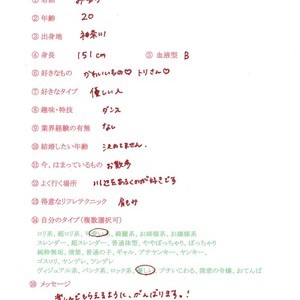 ② 年齢 20
③ 出身地 神奈川
④ 身長 151cm ⑤ 血液型 B
⑥ 好きなもの かわいいもの♡ トリさん♡
⑦ 好きなタイプ 優しい人
⑧ 趣味・特技 ダンス
⑨ 業界経験の有無 なし
⑩ 結婚したい年齢 決めてません。
⑪ 今、はまっているもの お散歩
⑫ よく行く場所 川辺をあるくのが好きです
⑬ 得意なリフレテクニック 肩もみ
⑭ 自分のタイプ(複数選択可)
ロリ系、超ロリ系、 綺麗系、お姉様系、お嬢様系
スレンダー、超スレンダー、普通体型、ややぽっちゃり、ぽっちゃり
純粋無垢、普通の子、ギャル、プチヤンキー、ヤンキー、
ゴスロリ、ヤンデレ、ツンデレ
ヴィジュアル系、パンク系、ロック系、癒し、プチいじわる、隣家の令嬢、おてんば
メッセージ
楽しんでもらえるように、がんばります。!